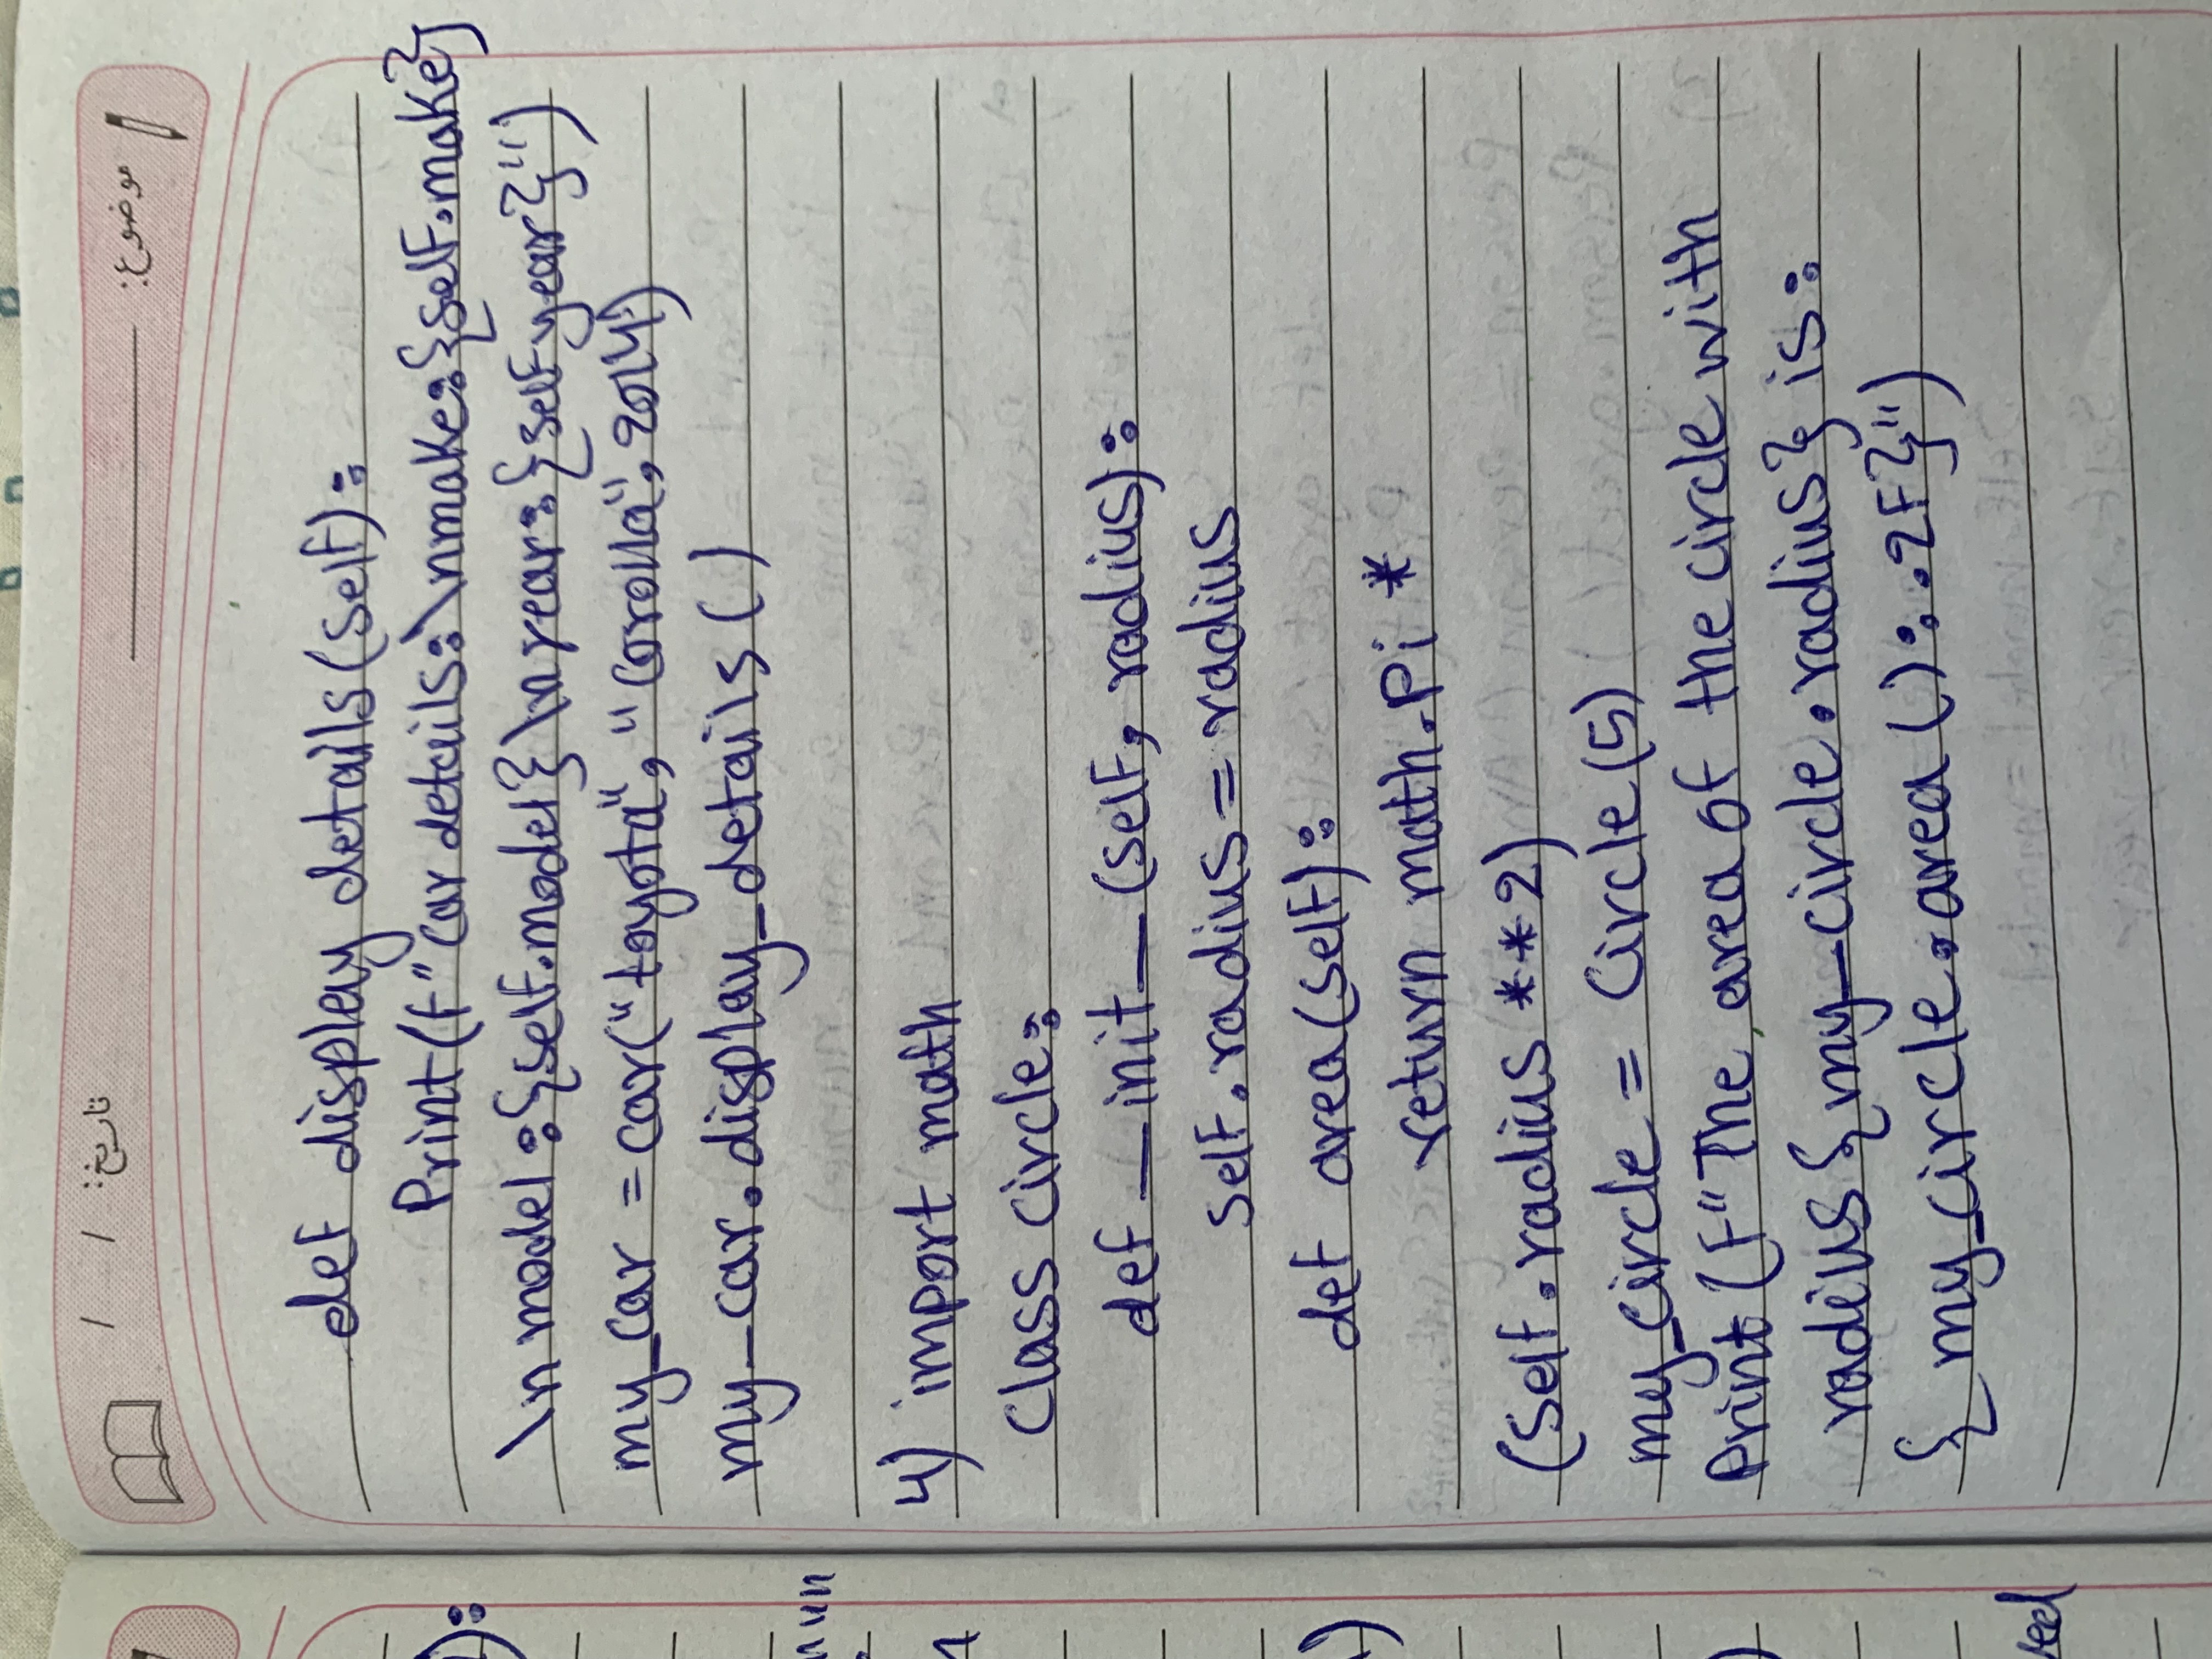 تاريخ: / /
موضوع:
def display details(self):
Print(f"car details:\nmake:{self.make}
\n model:{self.model}\n year:{self year}")
my_car = car("toyota", "Corolla", 2014)
my_car.display_details()
4) import math
Class circle:
def _init_(self, radius):
self.radius = radius
def area(self):
return math.Pi *
(self.radius **2)
my_circle = Circle(5)
Print(F"The area of the circle with
radius {my_circle.radius} is:
{ my_circle.area():.2F}")